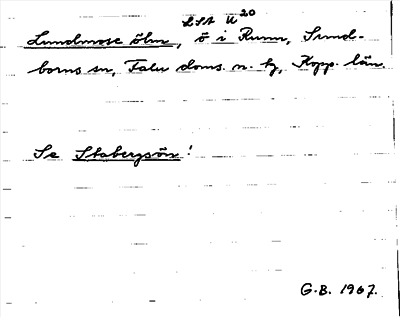 LSA U 20
Lundmose ölm, ö i Runn, Sund-
borns sn, Falu doms. n. tg, Kopp. län.
Se Stabergsön!
G.B. 1967.